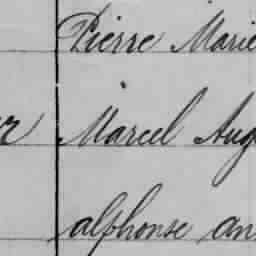 Pierre Marie
Marcel Aug
alphonse an